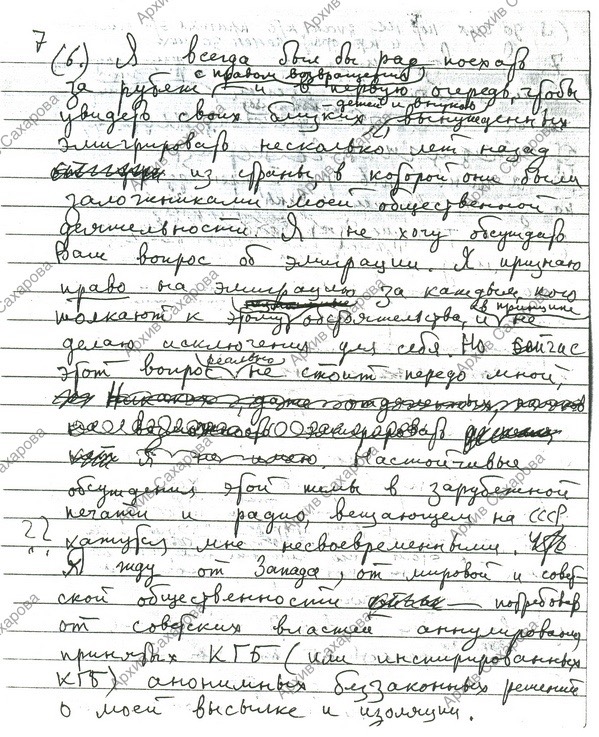 7
(6). Я всегда был бы рад поехать
с правом возвращения
за рубеж и в первую очередь, чтобы
– детей и внуков
увидеть своих близких, вынужденных
эмигрировать несколько лет назад
из страны в которой они были
заложниками моей общественной
деятельности. Я не хочу обсуждать
Ваш вопрос об эмиграции. Я признаю
право на эмиграцию за каждым, кого
в принципе
толкают к этому обстоятельства, и не
делаю исключения для себя. Но сейчас
реально
этот вопрос не стоит передо мной,
Я не имею. Настойчивые
обсуждения этой темы в зарубежной
печати и радио, вещающем на СССР
22
кажутся мне несвоевременными.
Я жду от Запада, от мировой и совет-
ской общественности – потребовать
от советских властей аннулирования
принятых КГБ (или инспирированных
КГБ) анонимных беззаконных решений
о моей высылке и изоляции.
Архив Сахарова